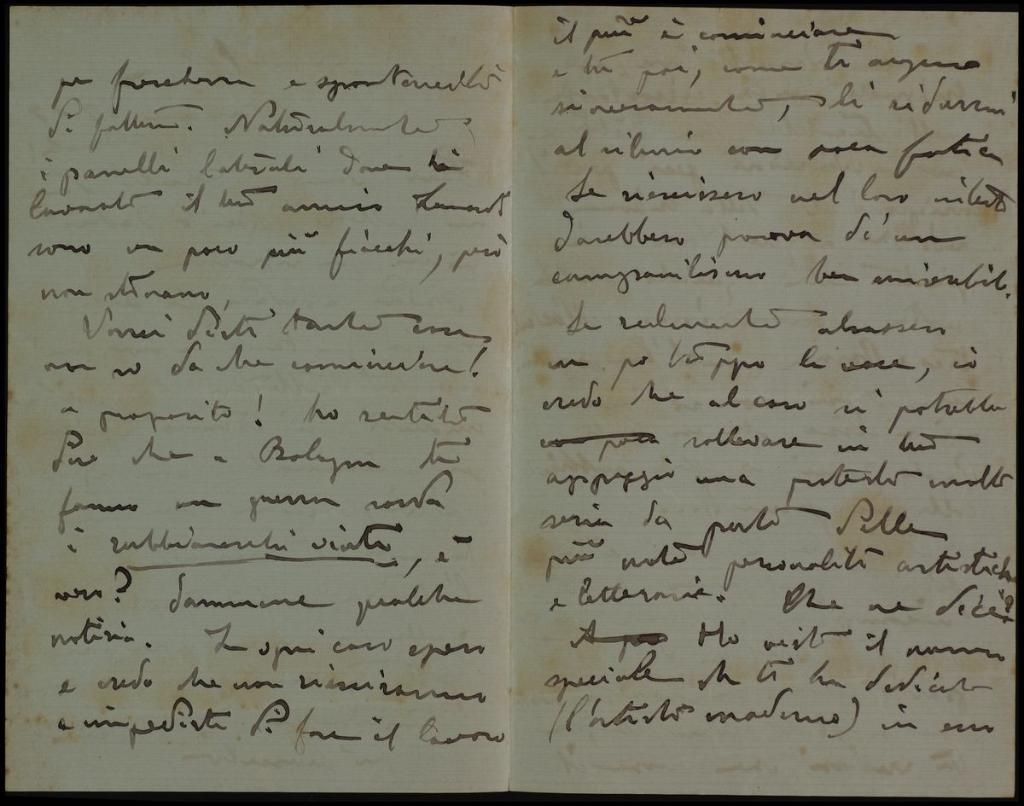 per freschezza e spontaneità
di fattura. Naturalmente
i pannelli laterali dove ha
lavorato il tuo amico
sono un poco più fiacchi, però
non stonano,
Vorrei dirti tante cose
non so da che cominciare!
a proposito! ho sentito
dire che a Bologna ti
fanno una guerra sorda
i rabbiaverchi vinti, è
vero? dammene qualche
notizia. In ogni caso spero
e credo che non riusciranno
a impedirti di fare il lavoro
il più è cominciare
e tu poi, come ti auguro
sinceramente, li ridurrai
al silenzio con poca fatica
Se riuscissero nel loro intento
darebbero prova di un
campanilismo ben miserabile.
Se realmente alzassero
un po troppo la voce, io
credo che al caso si potrebbe
sollevare in tuo
appoggio una protesta molto
seria da parte delle
più note personalità artistiche
e letterarie. Che ne dici?
Ho visto il numero
speciale che ti ha dedicato
(l'artista moderno) in esso